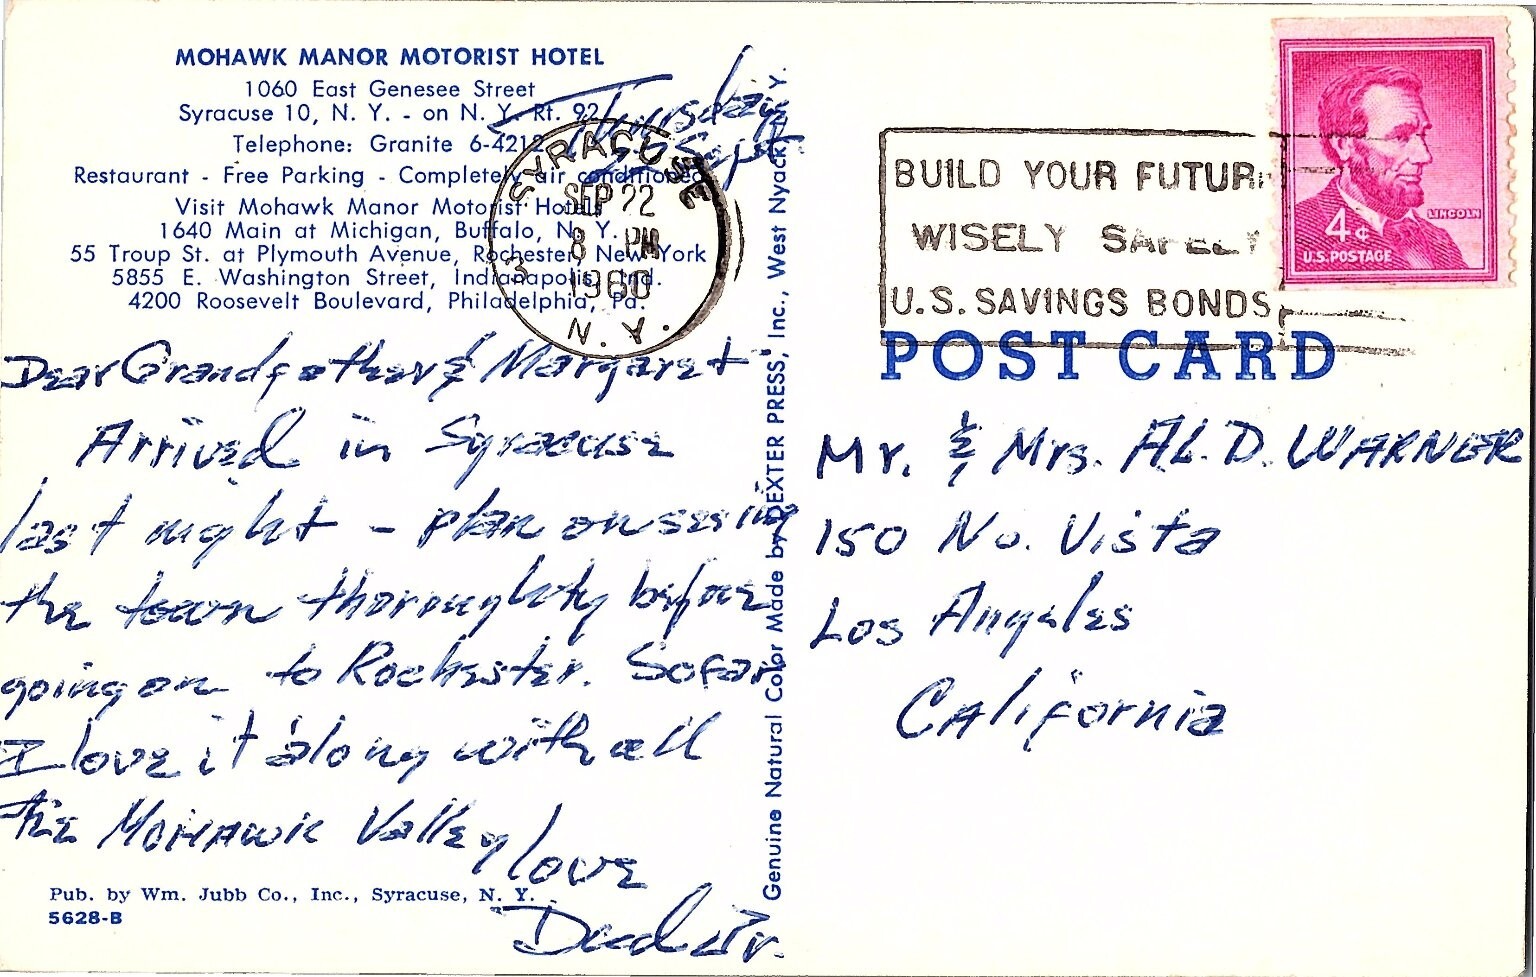 MOHAWK MANOR MOTORIST HOTEL
1060 East Genesee Street
Syracuse 10, N. Y. - on N. Y. Rt. 92
Telephone: Granite 6-4212
Restaurant - Free Parking - Completely air conditioned
Visit Mohawk Manor Motorist Hotels
1640 Main at Michigan, Buffalo, N. Y.
55 Troup St. at Plymouth Avenue, Rochester, New York
5855 E. Washington Street, Indianapolis, Ind.
4200 Roosevelt Boulevard, Philadelphia, Pa.
Thursday
Sept
SYRACUSE
SEP 22
8 PM
1960
N. Y.
3
Dear Grandfather & Margaret
Arrived in Syracuse
last night - plan on seeing
the town thoroughly before
going on to Rochester. So far
I love it along with all
the MOHAWK Valley
love
Pub. by Wm. Jubb Co., Inc., Syracuse, N. Y.
5628-B
Genuine Natural Color Made by DEXTER PRESS, Inc., West Nyack, N. Y.
BUILD YOUR FUTUR
WISELY SAFELY
U.S. SAVINGS BONDS
LINCOLN
4¢
U.S. POSTAGE
POST CARD
Mr. & Mrs. AL. D. WARNER
150 No. Vista
Los Angeles
California